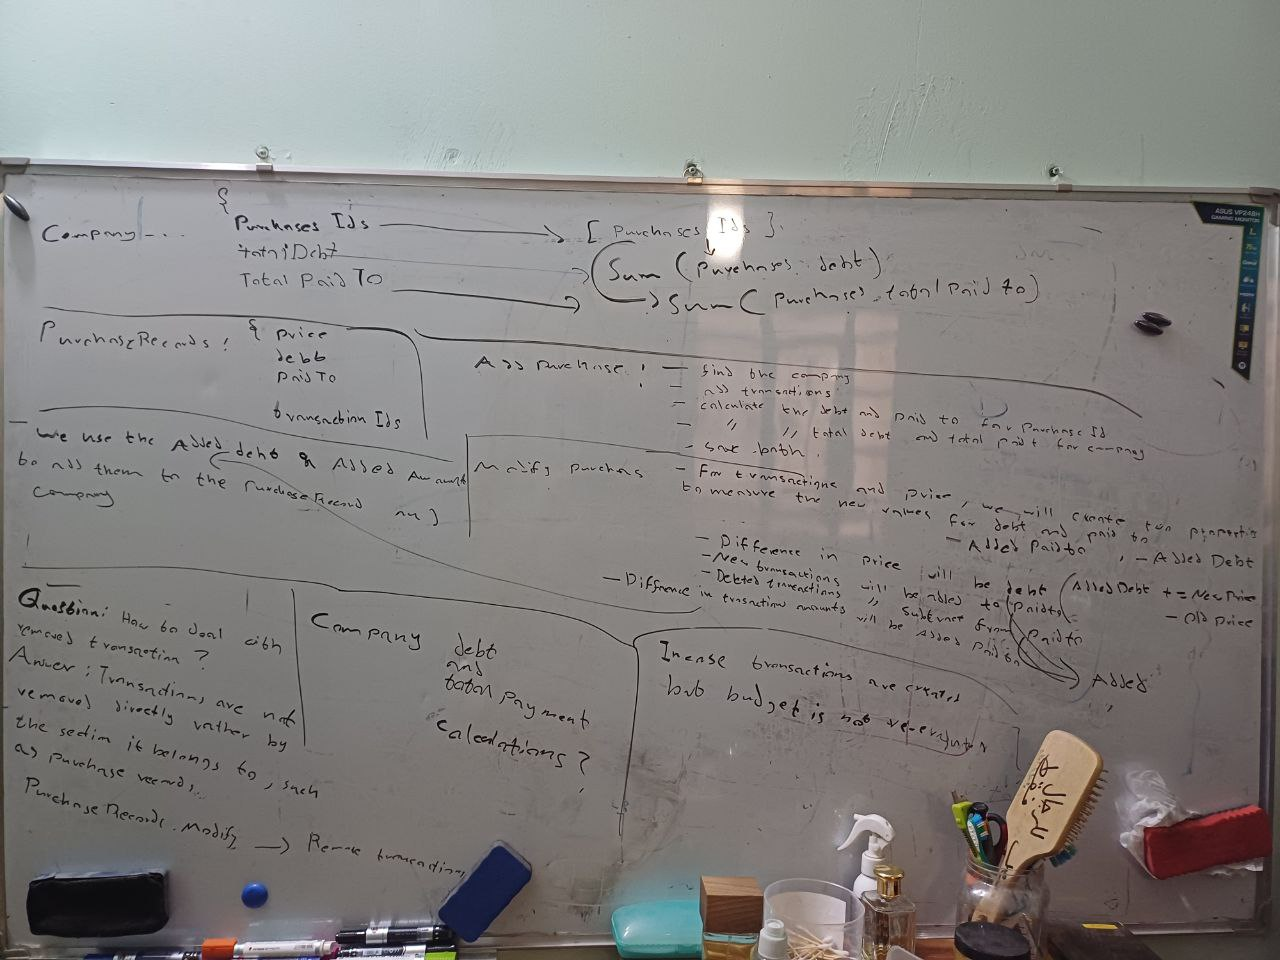 {
Company ....
Purchases Ids
[ Purchases Ids ].
total Debt
Sum ( Purchases. debt )
Total Paid To
Sum ( Purchases. total paid to )
PurchaseRecords :
{ price
debt
paid To
transaction Ids
Add purchase :
- find the company
- add transactions
- calculate the debt and paid to for purchase Id
- " " total debt and total paid for company
- save batch.
- we use the Added debt & Added Amount
to add them to the PurchaseRecord and
company
Modify purchas
- For transactions and price, we will create two properties
to measure the new values for debt and paid to
- Added Paid to , - Added Debt
- Difference in price will be debt
( Added Debt += New Price
- Old Price
- New transactions will be added to paid to
- Deleted transactions " Subtract from paid to
- Difference in transaction amounts will be Added paid to
Added
Question: How to deal with
removed transaction ?
Answer: Transactions are not
removed directly rather by
the section it belongs to, such
as purchase records..
PurchaseRecords. Modify → Remove transaction
Company
debt
and
total payment
calculations ?
transactions are created
but budget is not
ASUS VP248H
GAMING MONITOR